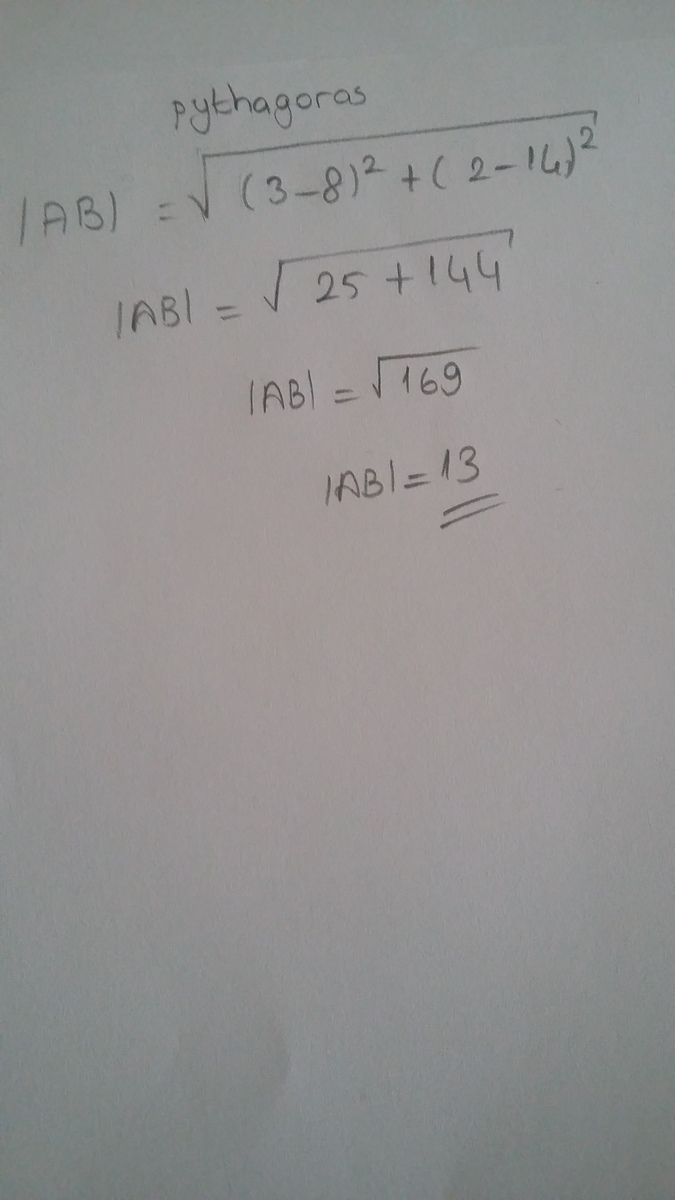 pythagoras
|AB| = √(3-8)² + (2-14)²
|AB| = √25 + 144
|AB| = √169
|AB| = 13